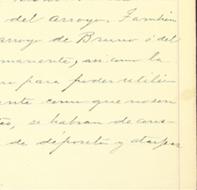 del arroyo. Tambien
arroyo de Bruno ó del
manente, así como la
para poder utilizar
ante como que no son
se habran de cons
de depósitos y atarjeas